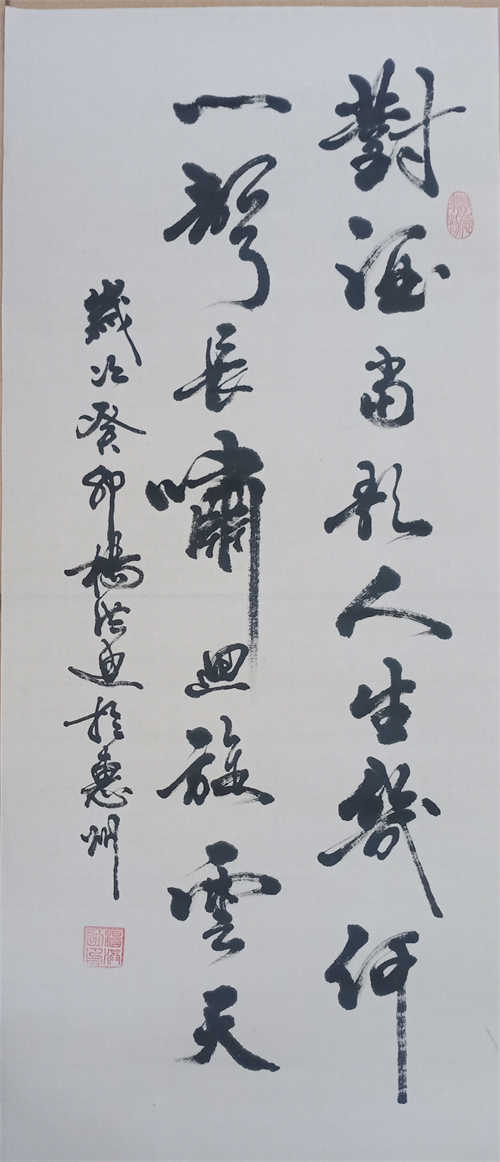 對酒當歌人生幾何
一聲長嘯迴旋雲天
歲次癸卯楊洪於惠州